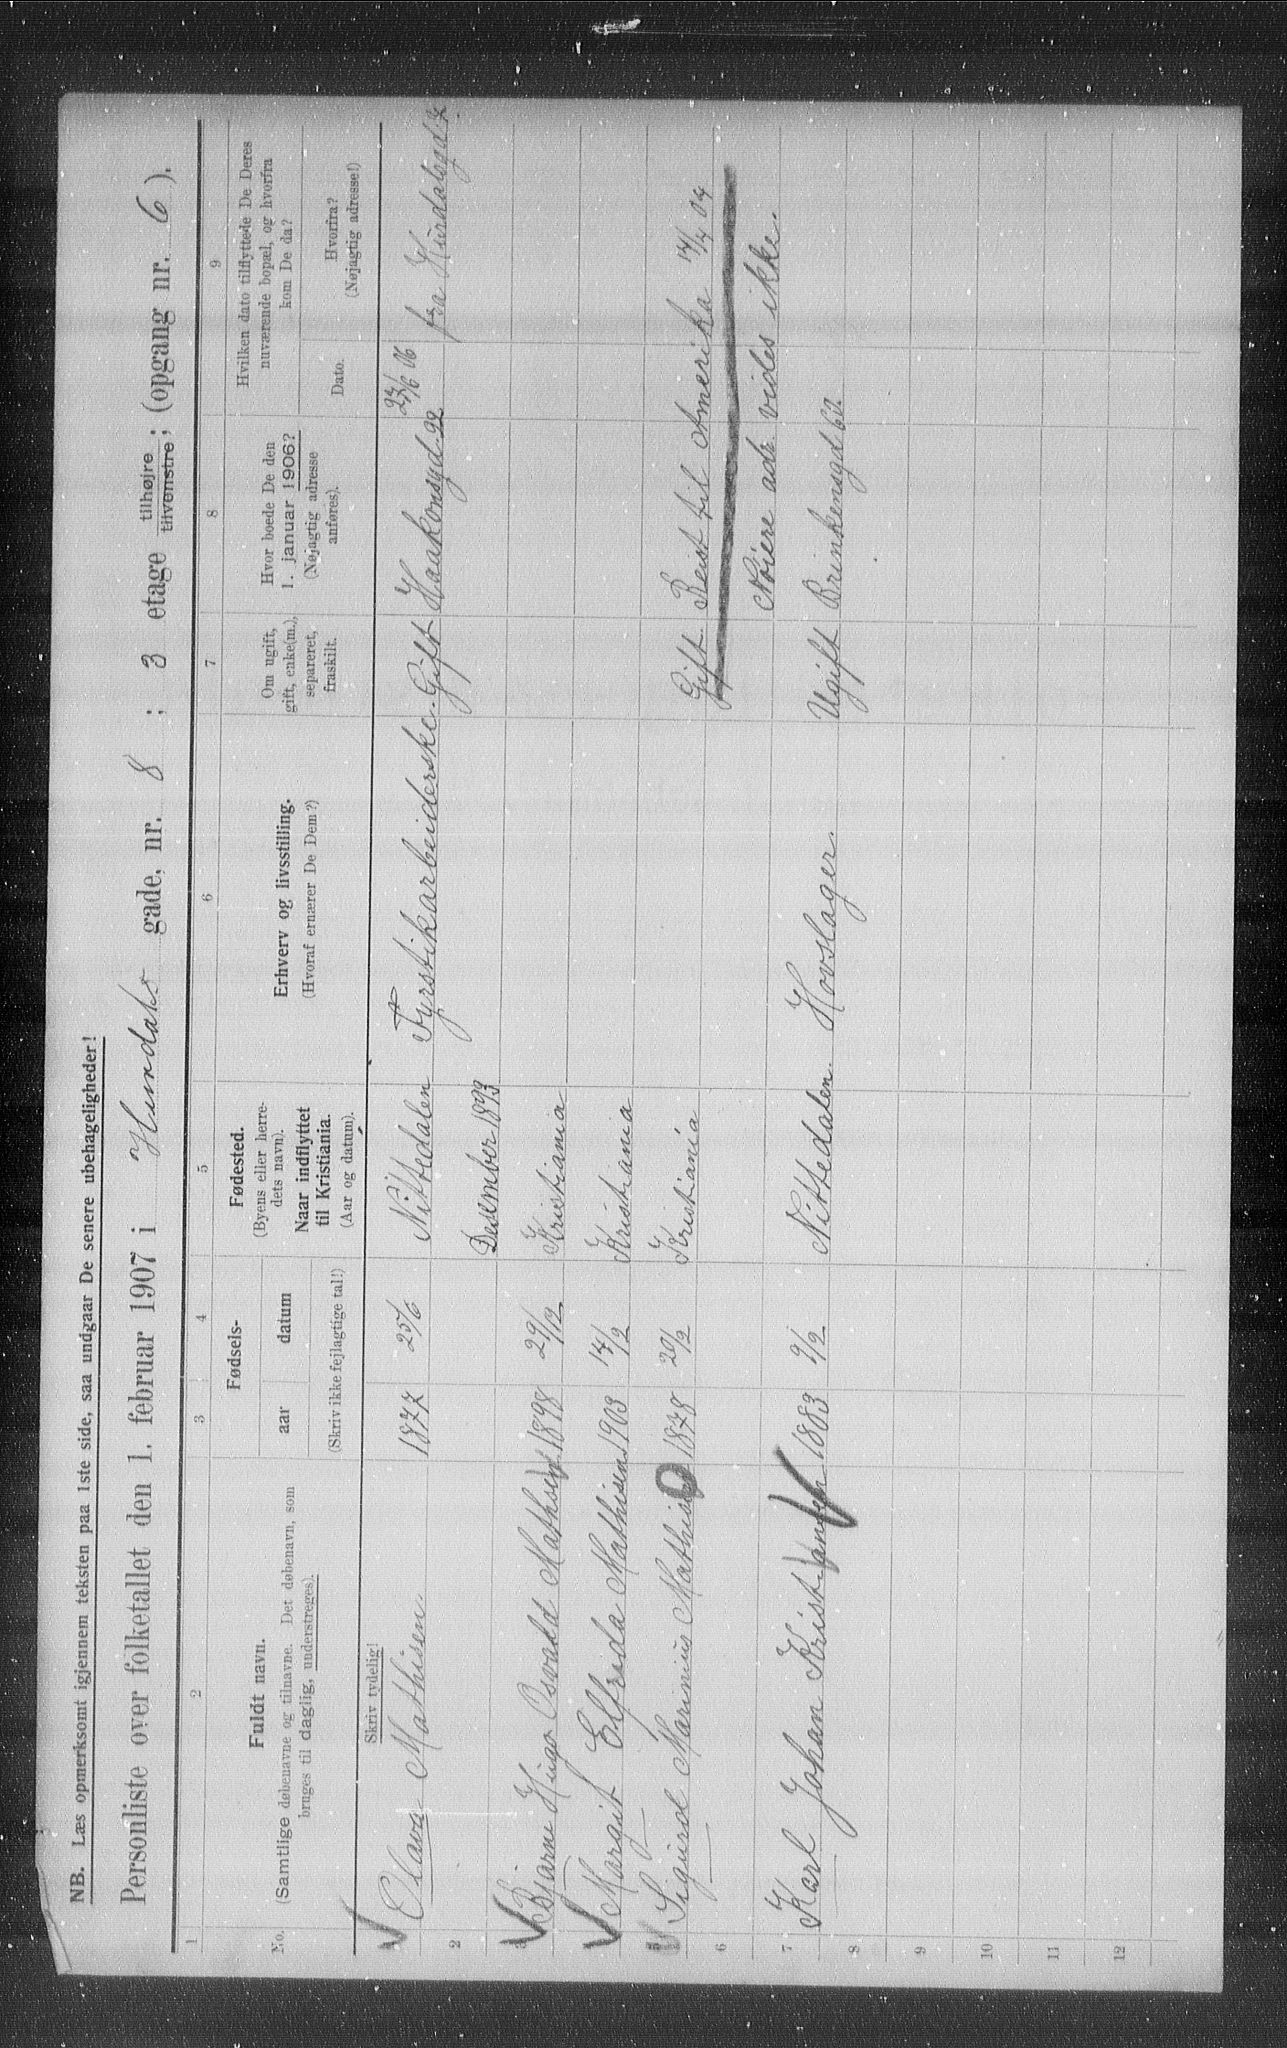 NB. Læs opmerksomt igjennem teksten paa 1ste side, saa undgaar De senere ubehageligheder!
Personliste over folketallet den 1. februar 1907 i Hurdals gade, nr. 8 ; 3 etage tilhøjre tilvenstre ; (opgang nr. 6 ).
1 2 3 4 5 6 7 8 9
No.
Fuldt navn.
(Samtlige døbenavne og tilnavne. Det døbenavn, som
bruges til daglig, understreges).
Fødsels-
aar datum
(Skriv ikke fejlagtige tal!)
Fødested.
(Byens eller herre-
dets navn).
Naar indflyttet
til Kristiania.
(Aar og datum).
Erhverv og livsstilling.
(Hvoraf ernærer De Dem?)
Om ugift,
gift, enke(m.),
separeret,
fraskilt.
Hvor boede De den
1. januar 1906?
(Nøjagtig adresse
anføres).
Hvilken dato tilflyttede De Deres
nuværende bopæl, og hvorfra
kom De da?
Dato.
Hvorfra?
(Nøjagtig adresse!)
Skriv tydelig!
Olava Mathisen 1877 25/6 Nittedalen Fyrstikarbeiderske. Gift Haakonsgd 22 23/6 06 fra Hurdalsgd 7
2 Desember 1893
3 Bjarne Hugo Osvald Mathisen 1898 29/12 Kristiania
Margit Elfrida Mathisen 1903 14/2 Kristiania
Sigurd Marinius Mathisen 1878 20/2 Kristiania Gift. Reist til Amerika 14/4 04
6 Nøiere adr. vides ikke.
7 Karl Johan Kristiansen 1883 9/2 Nittedalen. Hovslager. Ugift Brinkensgd 62
8
9
10
11
12